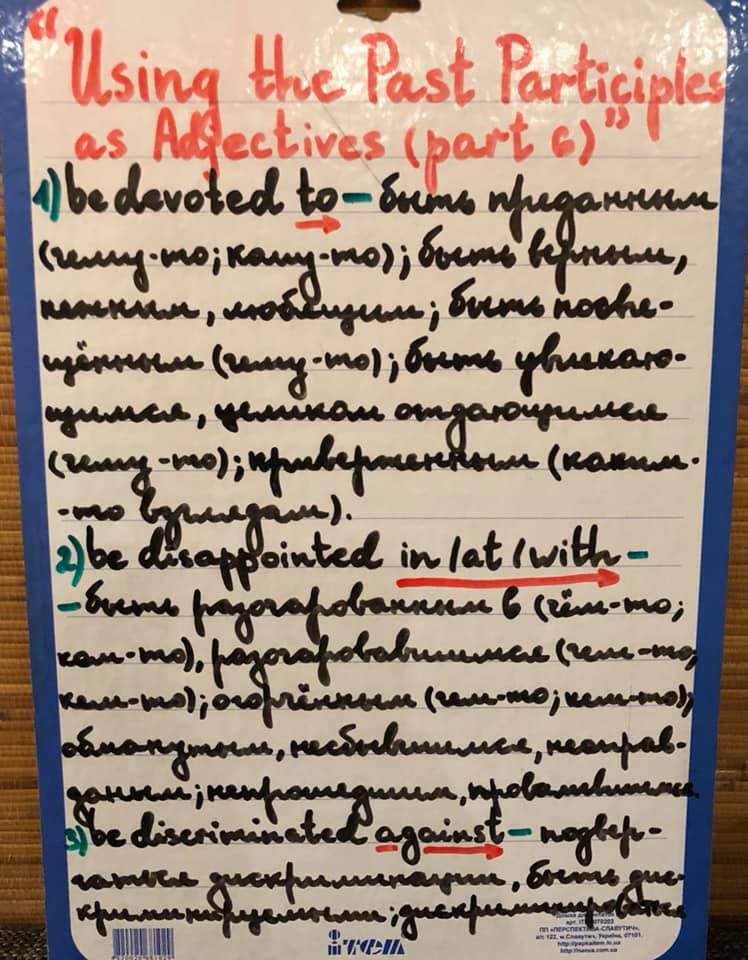 "Using the Past Participles
as Adjectives (part 6)"
1) be devoted to - быть преданным
(чему-то; кому-то); быть верным,
нежным, любящим; быть посвя-
щённым (чему-то); быть увлекаю-
щимся, целиком отдающимся
(чему-то); приверженным (каким-
-то взглядам).
2) be disappointed in/at/with -
- быть разочарованным в (чём-то;
ком-то), разочаровавшимся (чем-то;
кем-то); огорчённым (чем-то; кем-то);
обманутым, несбывшимся, неоправ-
даным; непрошедшим, провалившимся
3) be discriminated against - подвер-
гаться дискриминации, быть дис-
криминируемыми; дискриминироваться
арт. ІТ
ПП «ПЕРСПЕКТИВА-СЛАВУТИЧ»,
а/с 122, м.Славутич, Україна, 07101.
http://papkaitem.in.ua
ітем